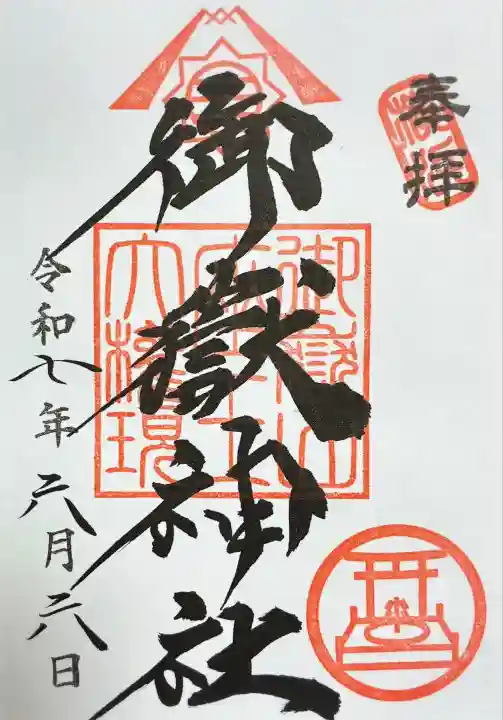 奉拝
御嶽神社
御嶽山
大権現
令和七年六月六日